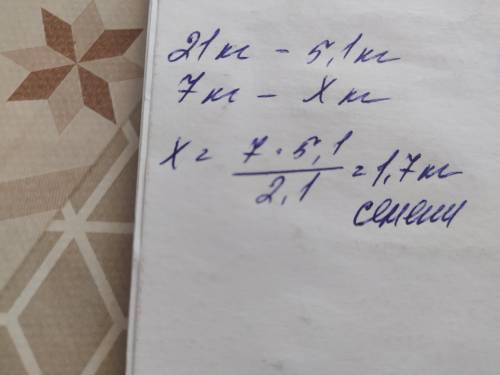 21кг - 5,1кг
7кг - Xкг
X = 7 · 5,1 / 2,1 = 1,7кг
семени